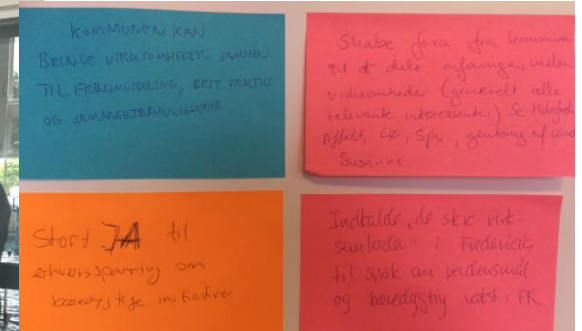 KOMMUNEN KAN
BRINGE VIRKSOMHEDER SAMMEN
TIL ERFARINGSDELING, BEST PRACTICE
OG SAMARBEJDSMULIGHEDER
Skabe fora fra kommunen
til at dele erfaringer mellem
virksomheder (generelt alle
relevante interessenter) Se
Affald,
Susanne.
Stort JA til
erhvervssparring om
bæredygtige initiativer
Indkalde "de store virk-
somheder" i Fredericia
til snak om verdensmål
og bæredygtig vækst i FK.